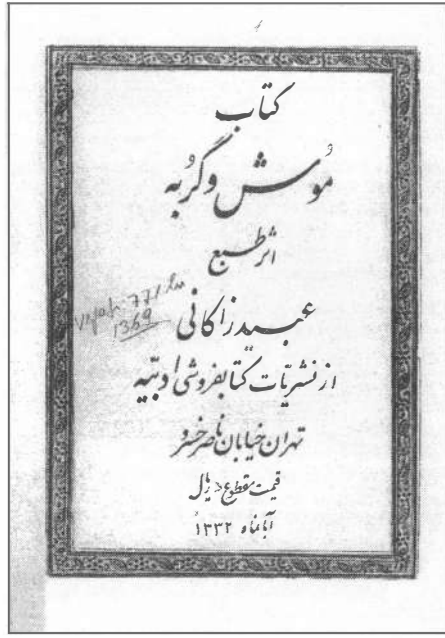 کتاب
موش و گربه
اثر طبع
عبید زاکانی
از نشریات کتابفروشی ادبیه
تهران خیابان ناصرخسرو
قیمت مقطوع ریال
آبانماه ۱۳۳۲
1369